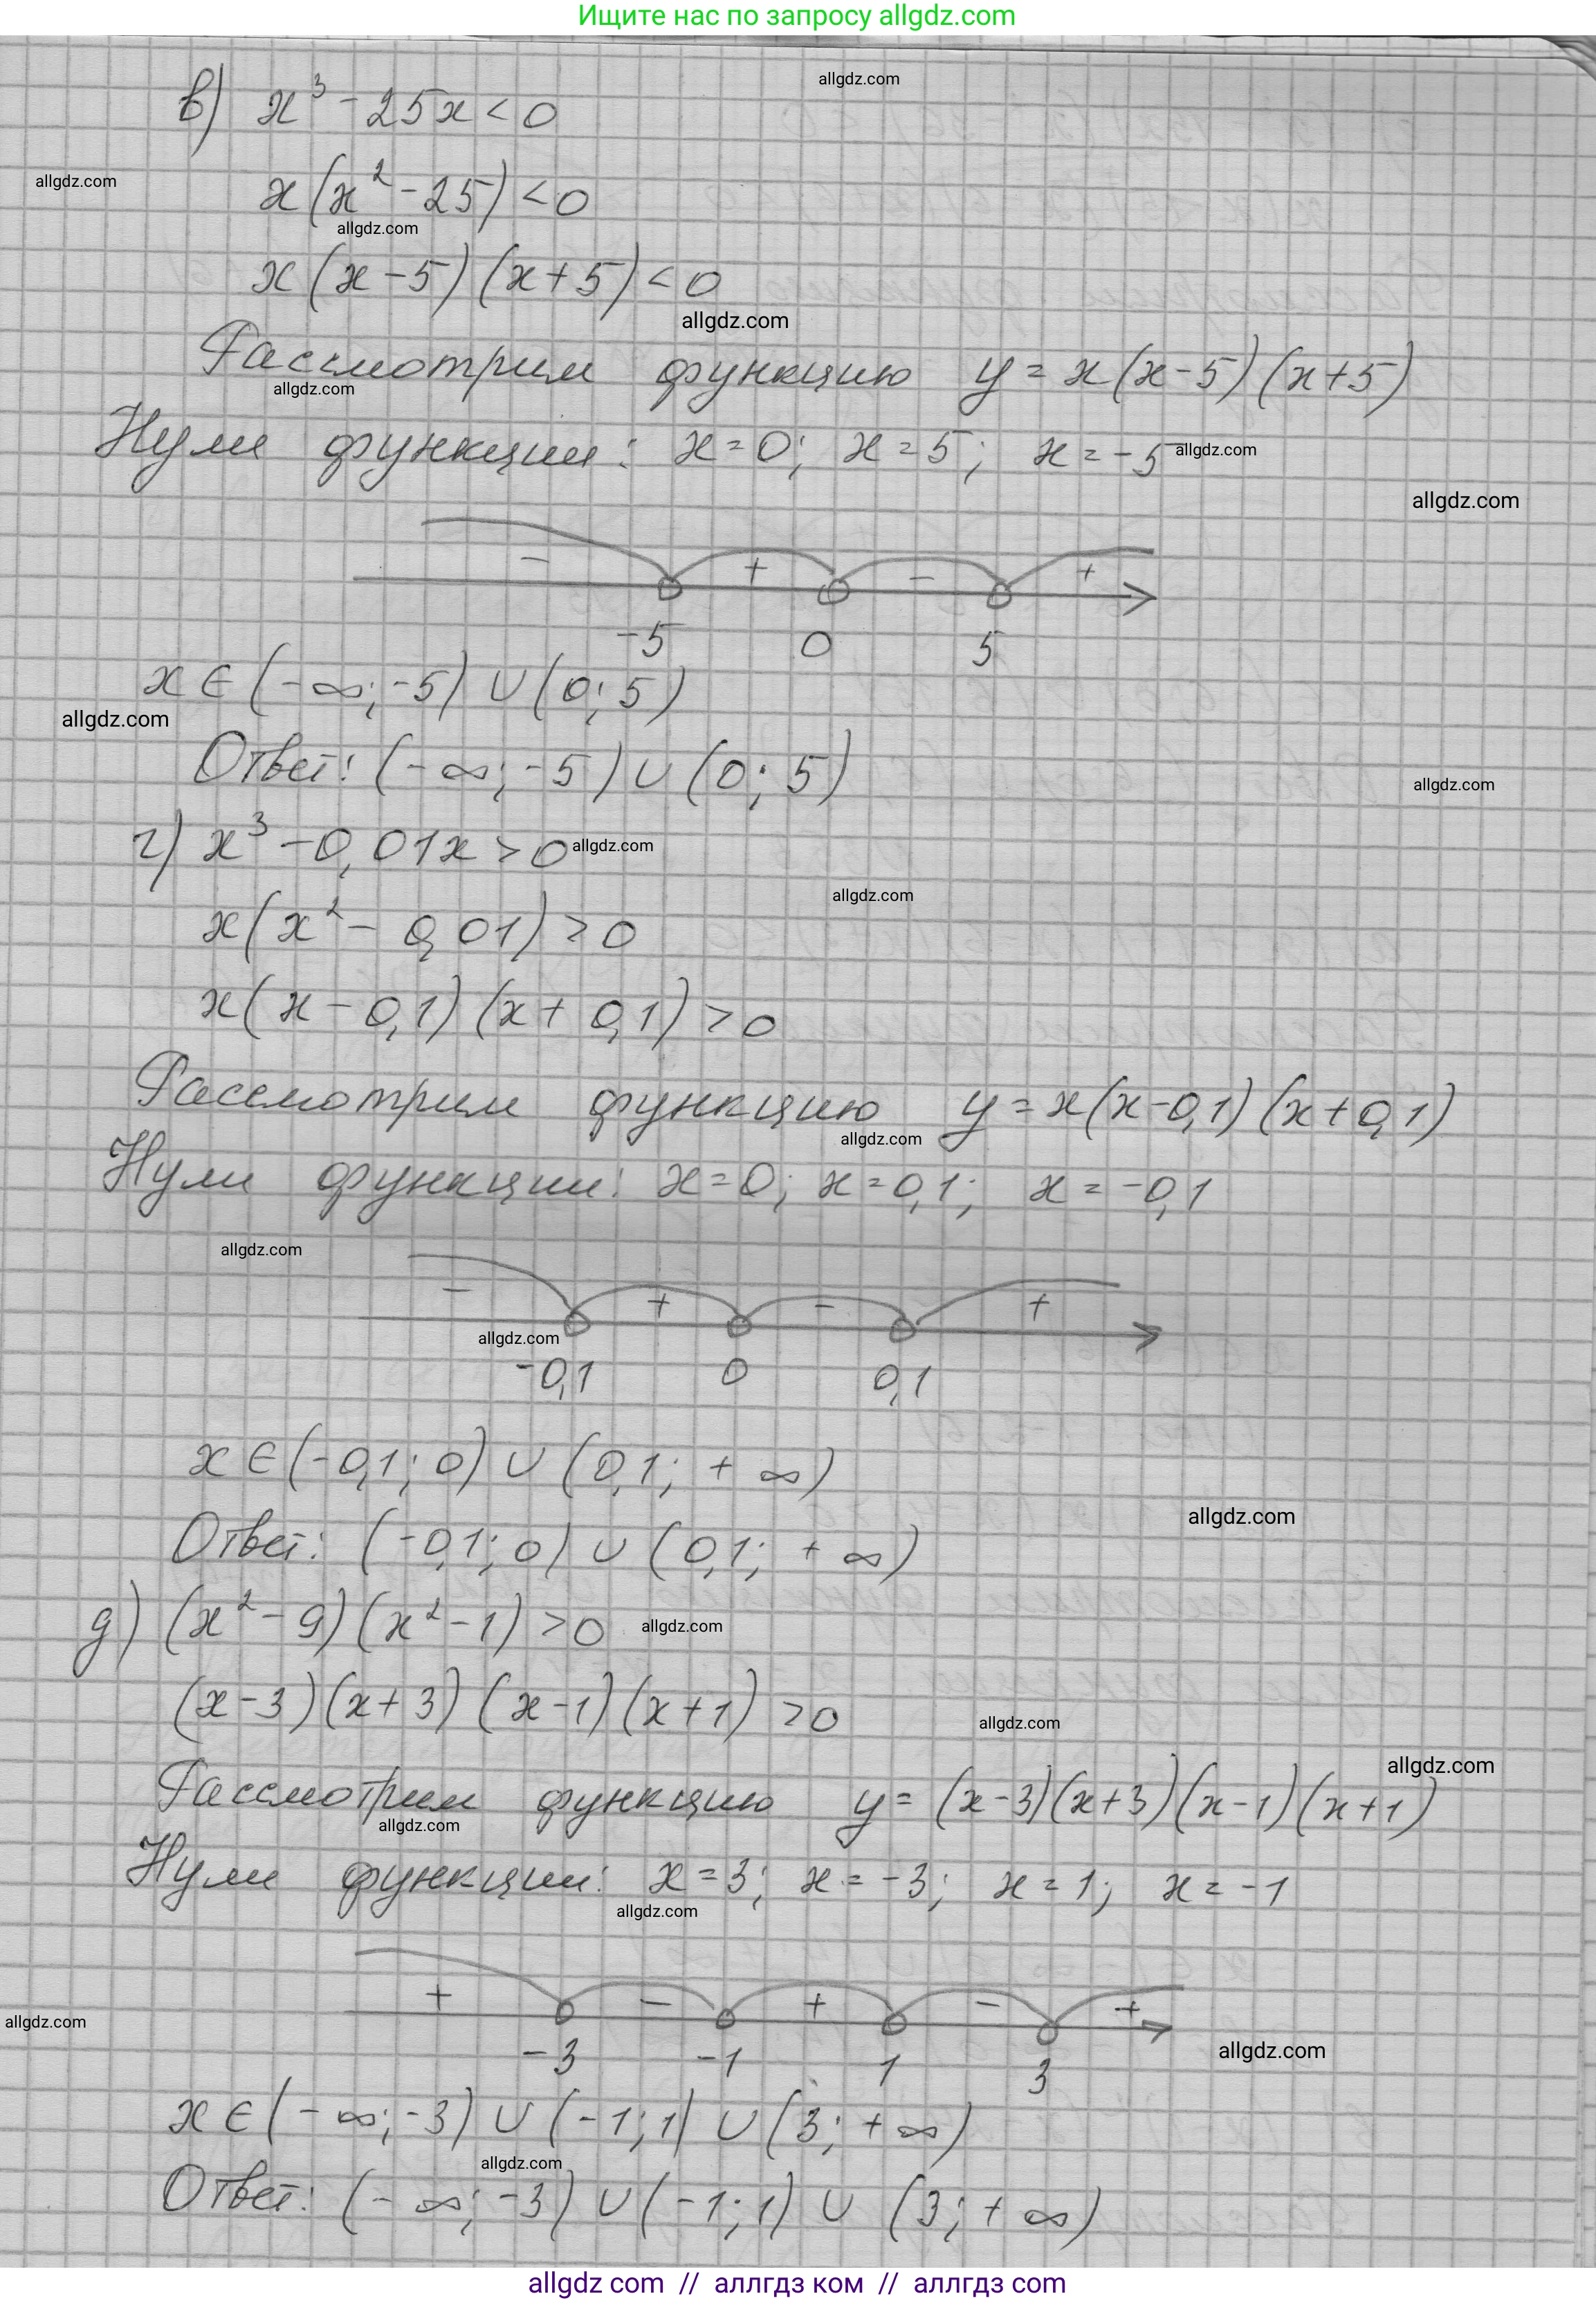 Ищите нас по запросу allgdz.com
allgdz.com
в) x³ - 25x < 0
allgdz.com
x(x² - 25) < 0
allgdz.com
x(x - 5)(x + 5) < 0
allgdz.com
Рассмотрим функцию y = x(x - 5)(x + 5)
allgdz.com
Нули функции: x = 0; x = 5; x = -5
allgdz.com
allgdz.com
- + - +
-5 0 5
x ∈ (-∞; -5) ∪ (0; 5)
allgdz.com
Ответ: (-∞; -5) ∪ (0; 5)
allgdz.com
г) x³ - 0,01x > 0
allgdz.com
allgdz.com
x(x² - 0,01) > 0
x(x - 0,1)(x + 0,1) > 0
Рассмотрим функцию y = x(x - 0,1)(x + 0,1)
allgdz.com
Нули функции: x = 0; x = 0,1; x = -0,1
allgdz.com
- + - +
allgdz.com
-0,1 0 0,1
x ∈ (-0,1; 0) ∪ (0,1; +∞)
allgdz.com
Ответ: (-0,1; 0) ∪ (0,1; +∞)
д) (x² - 9)(x² - 1) > 0
allgdz.com
(x - 3)(x + 3)(x - 1)(x + 1) > 0
allgdz.com
allgdz.com
Рассмотрим функцию y = (x - 3)(x + 3)(x - 1)(x + 1)
allgdz.com
Нули функции: x = 3; x = -3; x = 1; x = -1
allgdz.com
+ - + - +
allgdz.com
allgdz.com
-3 -1 1 3
x ∈ (-∞; -3) ∪ (-1; 1) ∪ (3; +∞)
allgdz.com
Ответ: (-∞; -3) ∪ (-1; 1) ∪ (3; +∞)
allgdz com // аллгдз ком // аллгдз com